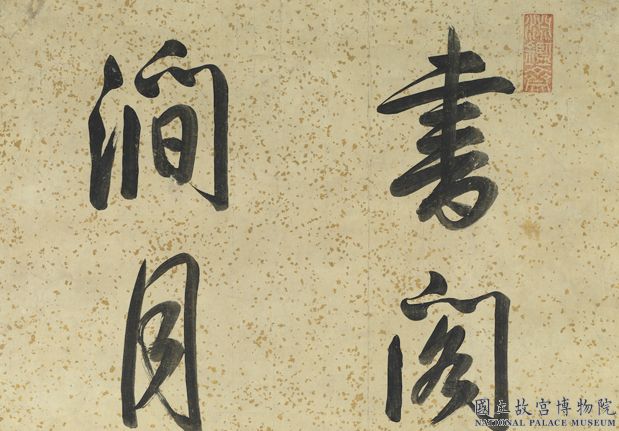 書閣
澗月
國立故宮博物院
NATIONAL PALACE MUSEUM